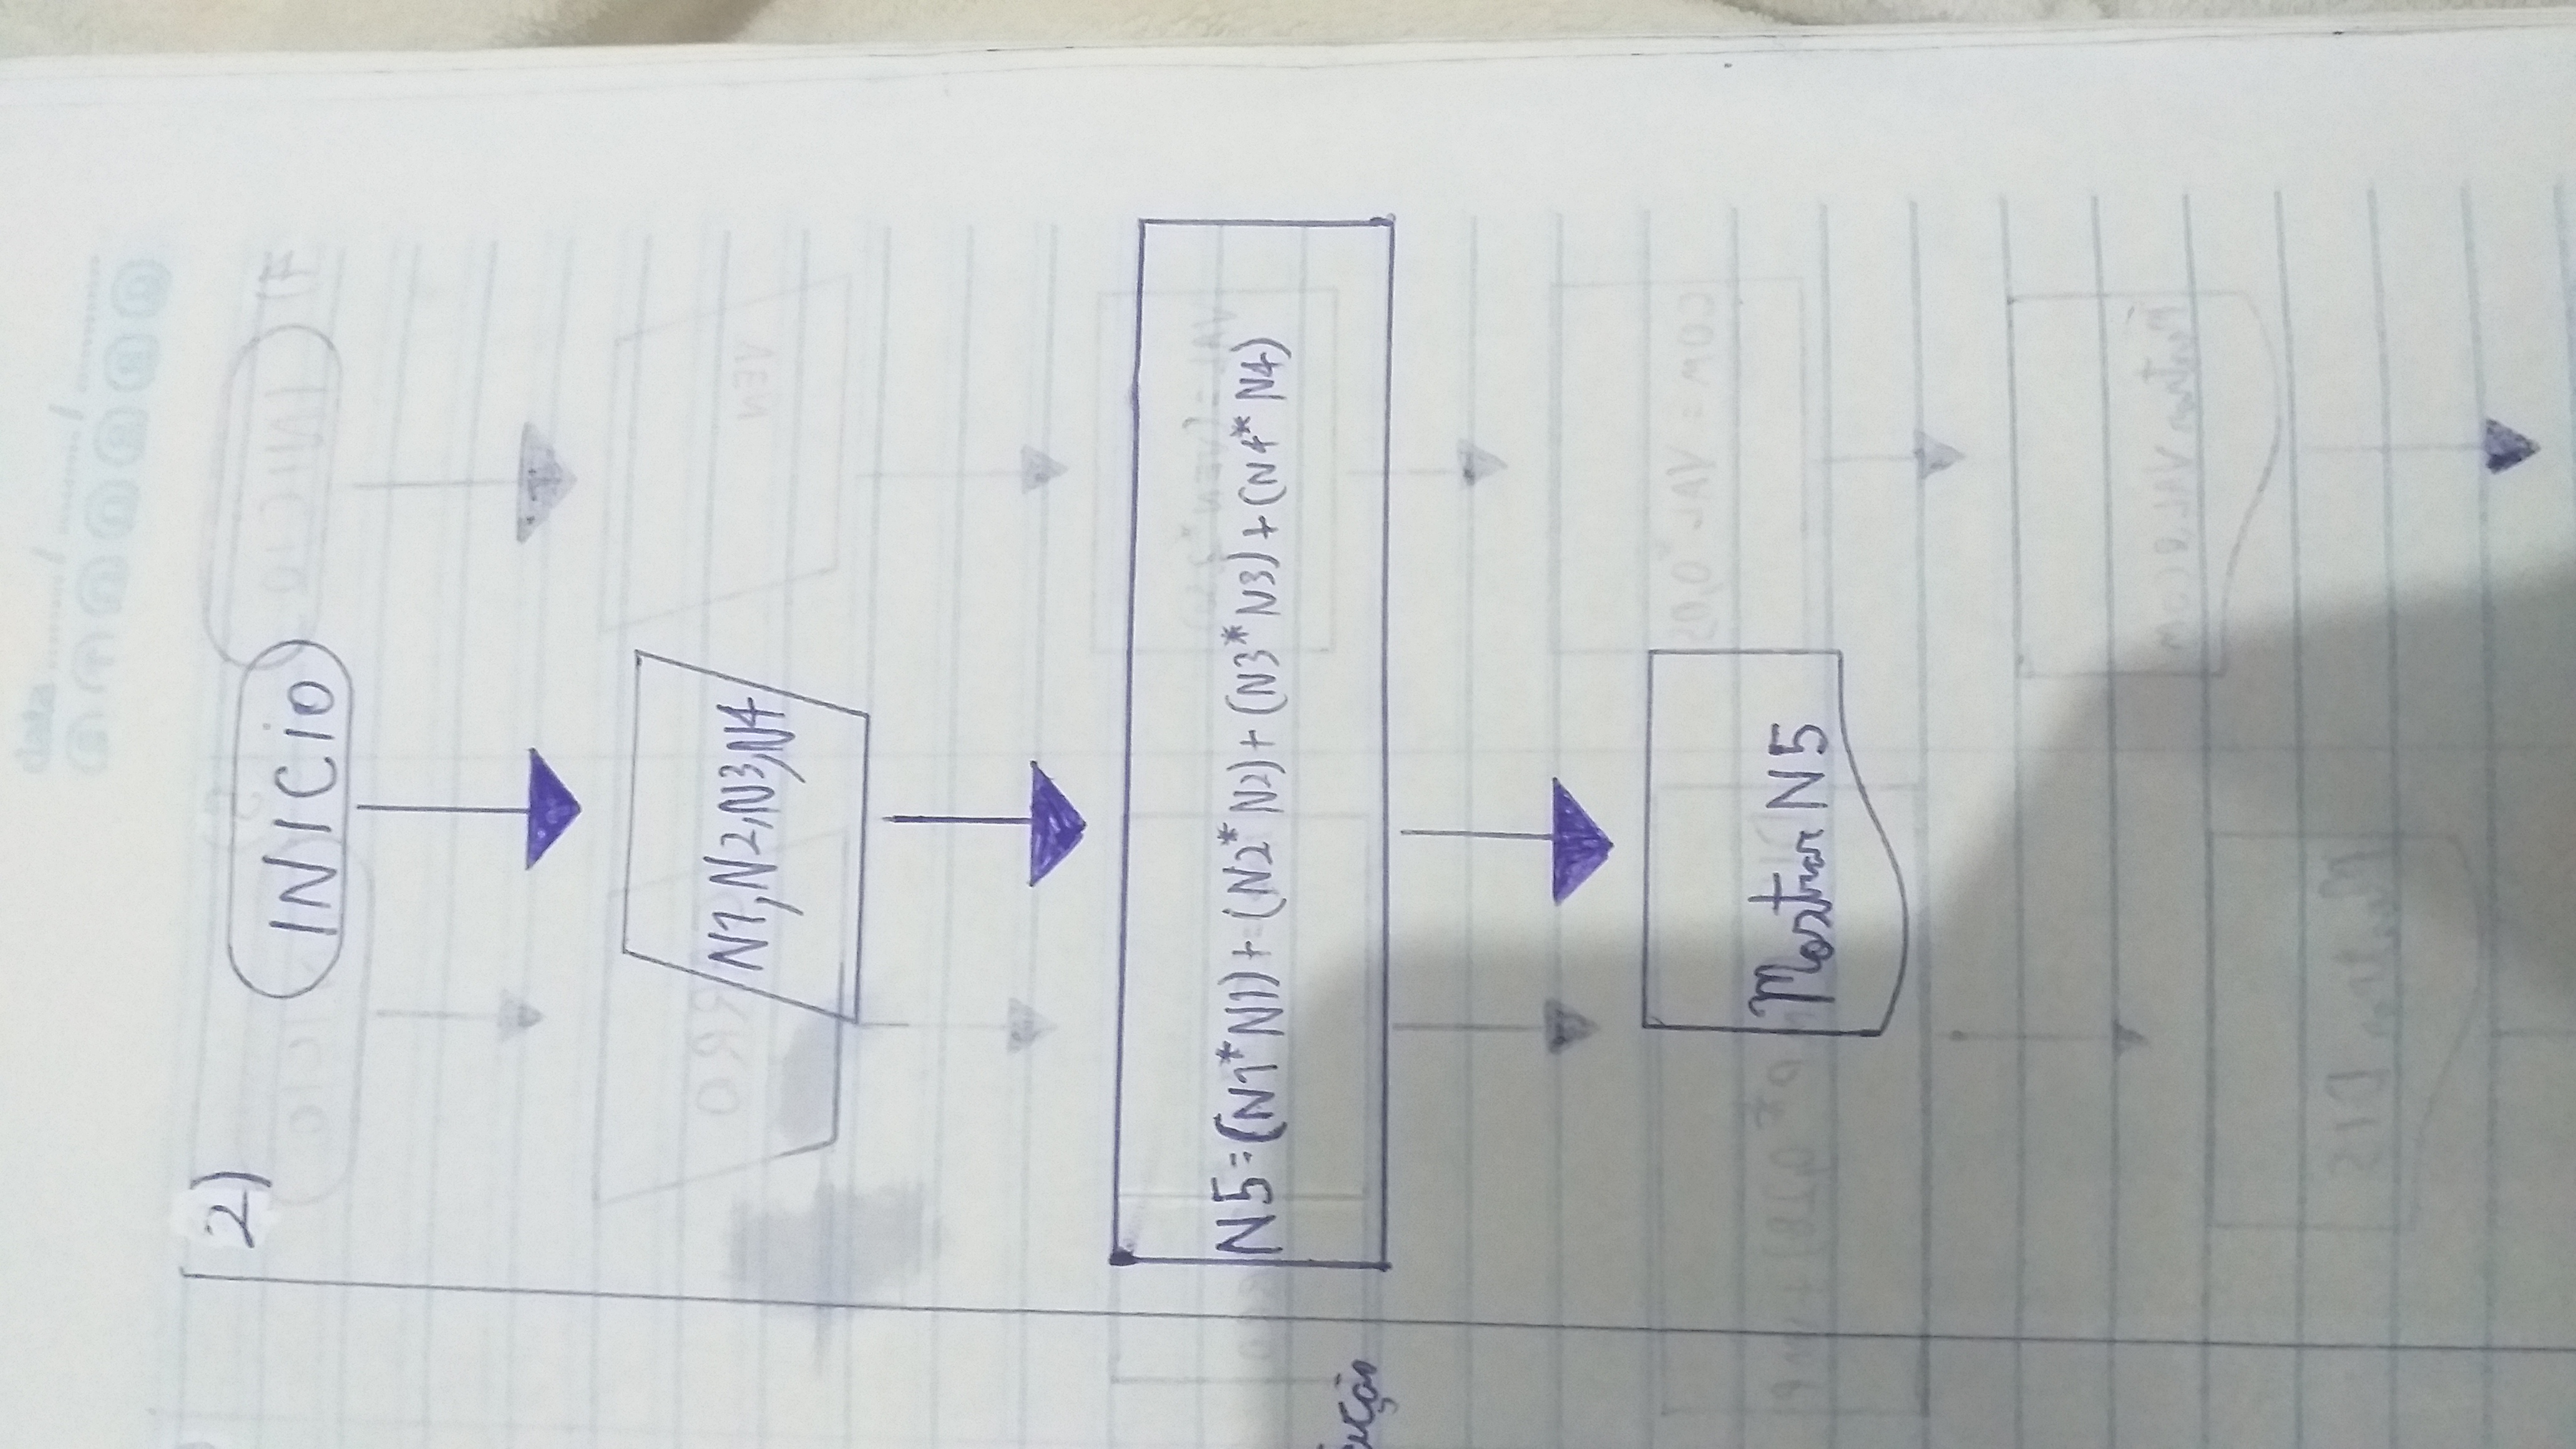 2)
INICIO
N1, N2, N3, N4
N5 = (N1*N1) + (N2*N2) + (N3*N3) + (N4*N4)
Mostrar N5